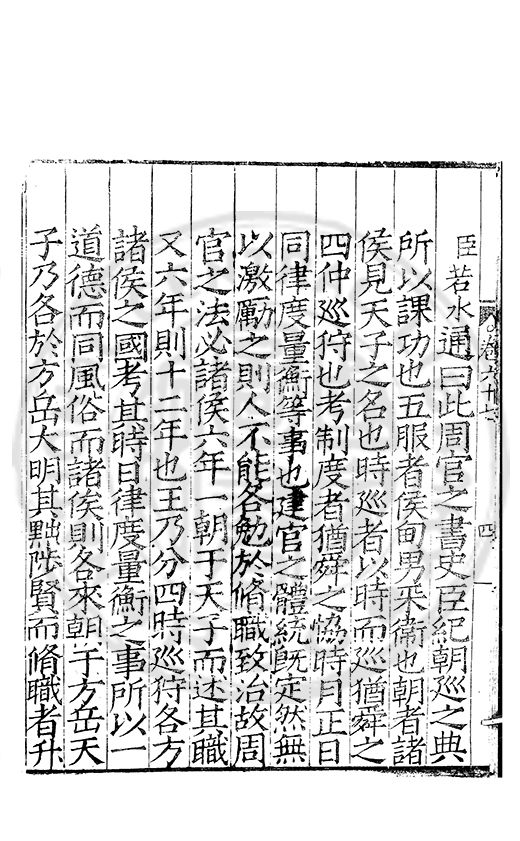 卷六十七
四
臣若水通曰此周官之書史臣紀朝巡之典
所以課功也五服者侯甸男采衛也朝者諸
侯見天子之名也時巡者以時而巡猶舜之
四仲巡狩也考制度者猶舜之恊時月正日
同律度量衡等事也建官之體統旣定然無
以激勵之則人不能各勉於脩職致治故周
官之法必諸侯六年一朝于天子而述其職
又六年則十二年也王乃分四時巡狩各方
諸侯之國考其時日律度量衡之事所以一
道德而同風俗而諸侯則各來朝于方岳天
子乃各於方岳大明其黜陟賢而脩職者升